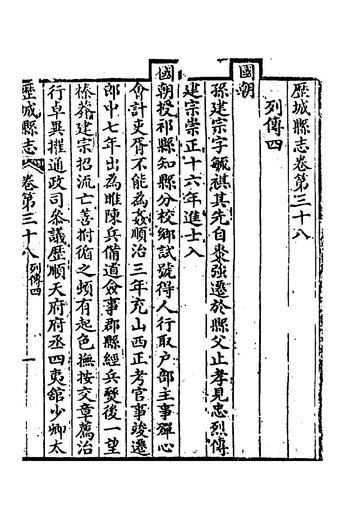 歷城縣志卷第三十八
列傳四
國朝
孫建宗字毓祺其先自棗強遷於縣父止孝見忠烈傳
建宗崇正十六年進士入
國朝授祁縣知縣分校鄉試號得人行取户部主事殫心
會計吏胥不能為姦順治三年充山西正考官事竣遷
郎中七年出為睢陳兵備道僉事郡縣經兵燹後一望
榛莽建宗招流亡善拊循之頗有起色撫按交章薦治
行卓異擢通政司叅議歷順天府府丞四夷館少卿太
歷城縣志
卷第三十八
列傳四
一